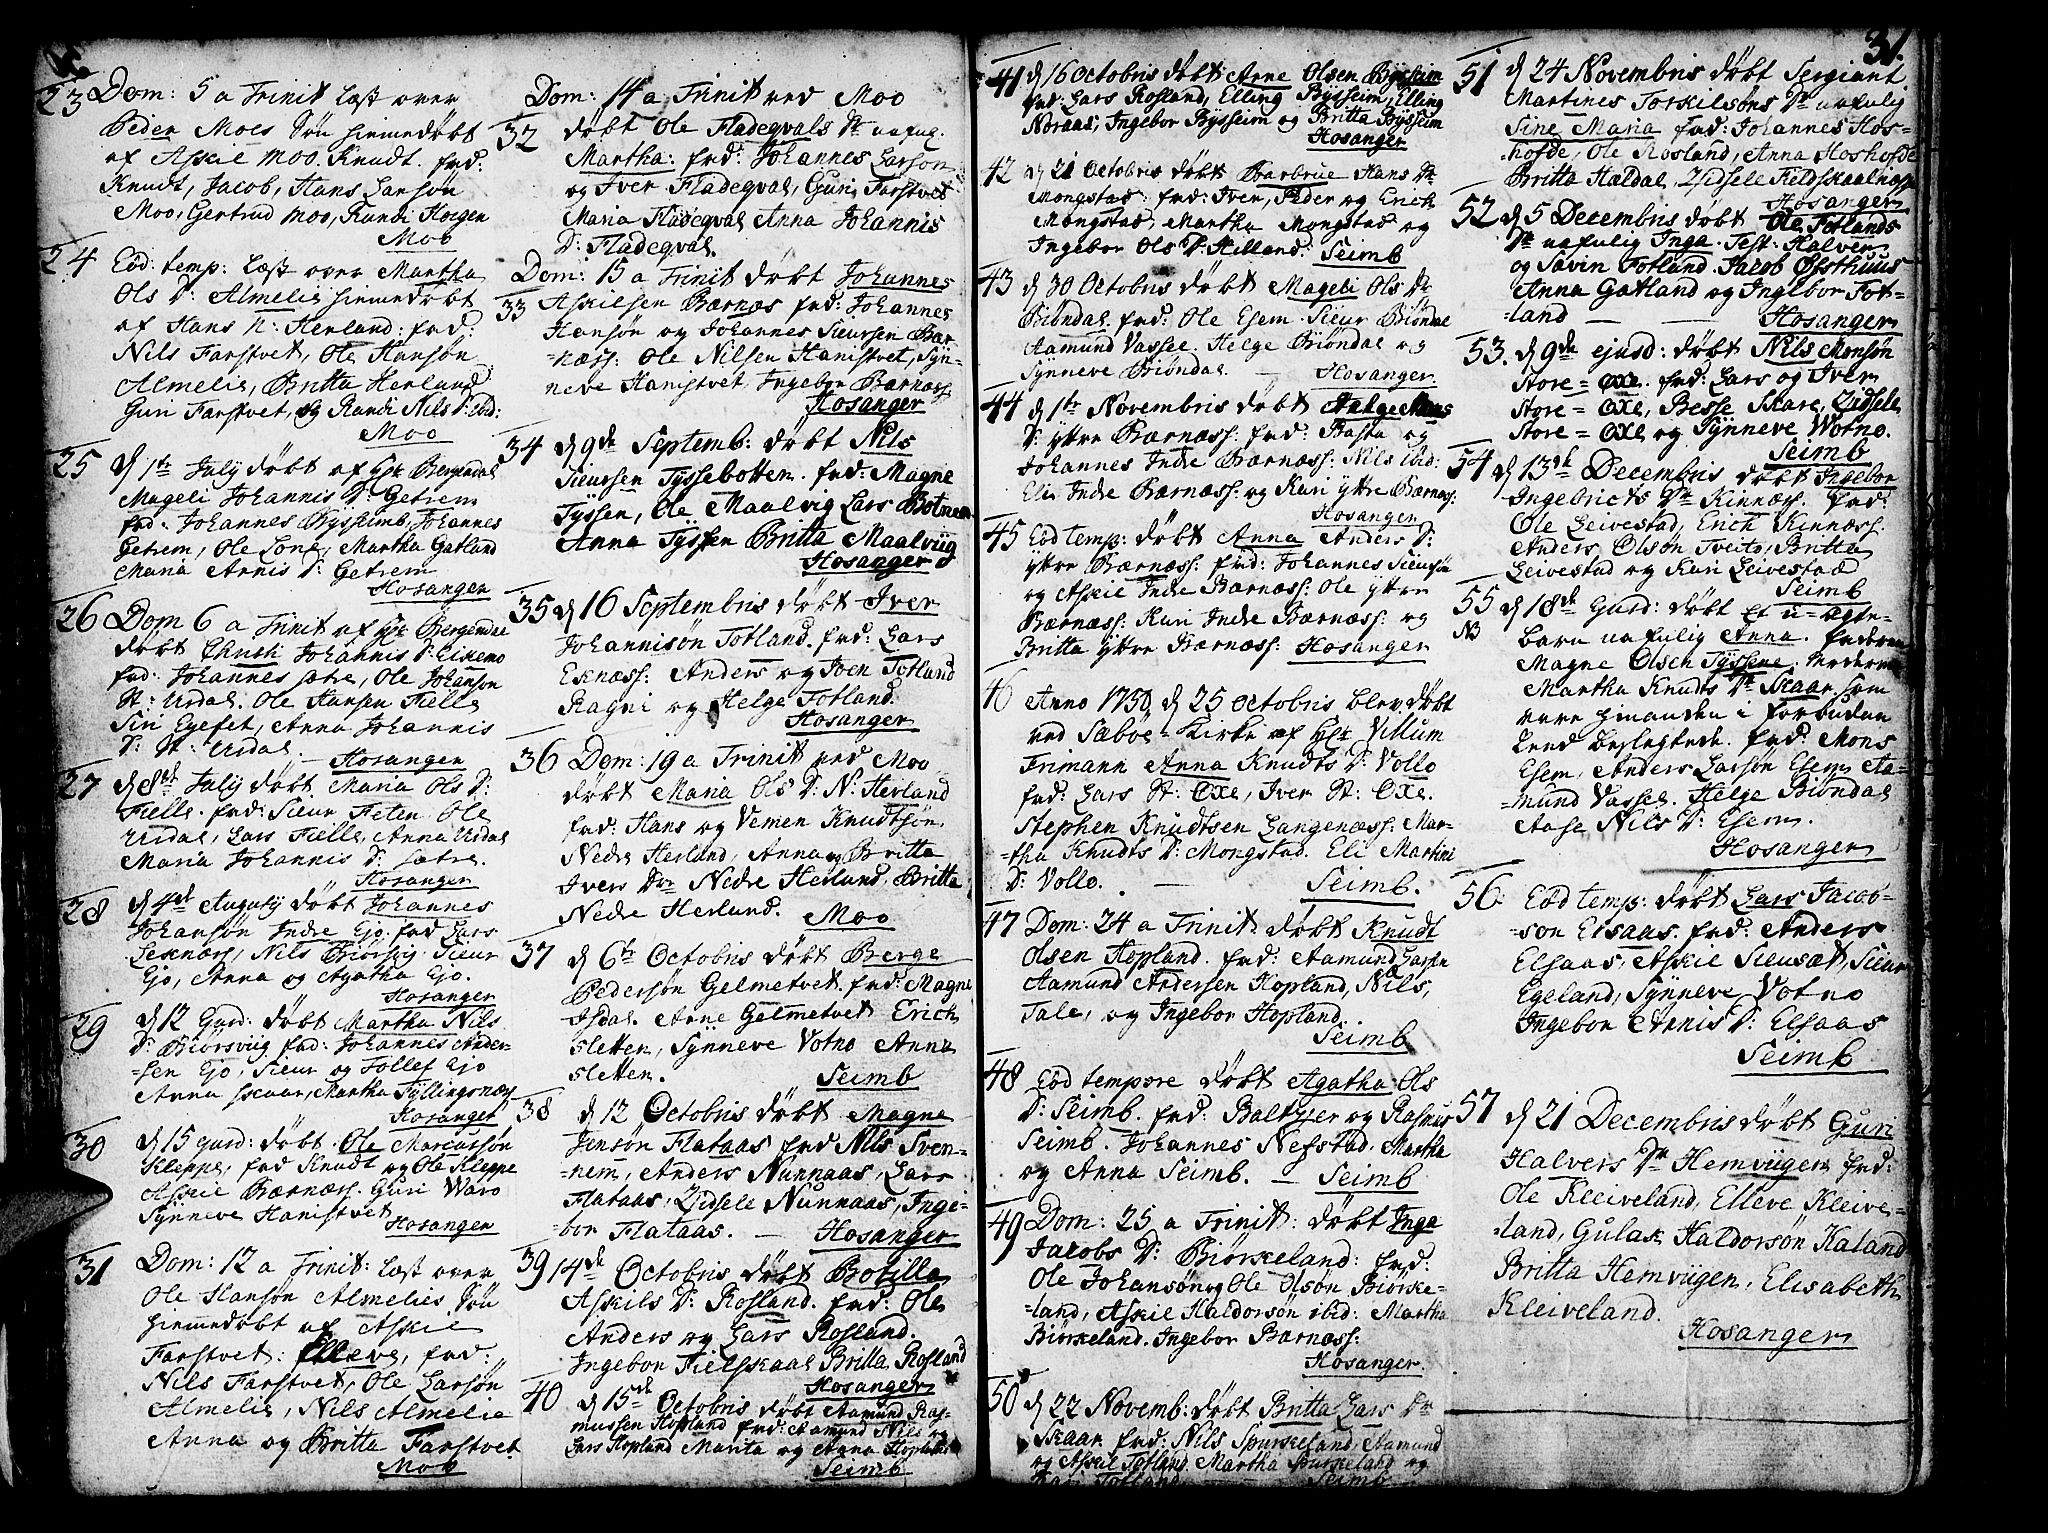 23 Dom: 5 a Trinit læst over
Peder Moes Søn hiemedøbt
af Askie Moo. Knudt. fad:
Knudt, Jacob, Hans Larsøn
Moo, Gertrud Moo, Randi Hougen
Moo
24 Eod: temp: læst over Martha
Ols D: Almelie hiemedøbt
af Hans N: Herland: fad:
Nils Farstvet, Ole Hansøn
Almelie, Britta Herland
Guri Farstvet, og Randi Nils D: ibid:
Moo
25 d 1te July døbt af Hr: Bergendal
Mageli Johannis D: Getrem
fad: Johannes Bysseimb, Johannes
Getrem, Ole Lone, Martha Gatland
Maria Arnis D: Getrem
Hosanger
26 Dom 6 a Trinit af Hr: Bergendal
døbt Christi Johannis D: Eikemo
fad: Johannes sætre, Ole Johanson
St: Urdal. Ole Hansen Fielle
Siri Egefet, Anna Johannis
D: St: Urdal. Hosanger
27 d 8de July døbt Maria Ols D:
Fielle. fad: Sieur Feten Ole
Urdal, Lars Fielle, Anna Urdal
Maria Johannis D: sætre.
Hosanger
28 d 4de Augusty døbt Johannes
Johansøn Indre Ejo. fad Lars
Eeknæss, Nils Biørsvig Sieur
Ejo, Anna og Agatha Ejo.
Hosanger
29 d 12 Eiusd: døbt Martha Nils
D: Biørsviig fad: Johannes Ander-
-sen Ejo, Sieur og Tollef Ejo
Anna skaar, Martha Tyllingsnæs
Hosanger
30 d 15 eiusd: døbt Ole Marcussøn
Kleppe, fad Knudt og Ole Kleppe
Askie Bærnæss. Guri Waro
Synneve Hanistvet
Hosanger
31 Dom: 12 a Trinit: læst over
Ole Hansøn Almelies Søn
hiemedøbt af Askie
Farstvet: Elleve, fad:
Nils Farstvet, Ole Larsøn
Almelie, Nils Almelie
Anna og Britta Farstvet
Moo
Dom: 14 a Trinit ved Moo
32 døbt Ole Fladeqvals Dr uaful.
Martha: fad: Johannes Larson
og Iver Fladeqval, Guri Farstvet
Maria Fladeqval Anna Johannis
D: Fladeqval.
Dom: 15 a Trinit døbt Johannes
33 Askilsen Bærnæs fad: Johannes
Hansøn og Johannes Sieursen Bær
-næss: Ole Nilsen Hanistvet, Syn-
neve Hanistvet, Ingebor Bærnæss
Hosanger
34 d 9de Septemb: døbt Nils
Sieursen Tyssebotten. fad: Magne
Tyssen, Ole Maalvig Lars Botnem
Anna Tyssen Britta Maalviig
Hosanger
35 d 16 Septembris døbt Iver
Johannisøn Totland. fad: Lars
Eknæss: Anders og Joen Totland
Ragni og Helge Totland.
Hosanger
36 Dom: 19 a Trinit ved Moo
døbt Maria Ols D: N: Herland
fad: Hans og Vemen Knudtsøn
Nedre Herland, Anna og Britta
Ivers Dr Nedre Herland, Britta
Nedre Herland. Moo
37 d 6te Octobris døbt Berge
Pedersøn Gelmetvet. fad: Magne
Isdal. Arne Gelmetvet Erich
sletten, Synneve Votno Anna
sletten. Seimb
38 d 12 Octobris døbt Magne
Jensøn Flataas fad Nils Sven-
-nem, Anders Nunnaas, Lars
Flataas, Zidsele Nunnaas, Inge-
bor Flataas. — Hosanger
39 14de Octobris døbt Botilla
Askils D: Rosland. fad: Ole
Anders og Lars Rosland.
Ingebor Fielskaal Britta Rosland
Hosanger
40 d 15de Octobris døbt Aamund Ras-
mussen Hopland fad: Aamund Nils og
Lars Hopland Marita og Anna Hopland
Seimb
31.
41 d 16 Octobris døbt Arne Olsen Bysseim
fad: Lars Rosland, Elling Bysseim, Elling
Noraas, Ingebor Bysseim og Britta Bysseim
Hosanger
42 d 21 Octobris døbt Barbrue Hans Dr
Mongstad: fad: Iver, Peder og Erich
Mongstad, Martha Mongstad og
Ingebor Ols D: Hilland: Seimb
43 d 30 Octobris døbt Mageli Ols Dr
Biøndal. fad: Ole Esem. Sieur Biøndal
Aamund Vassel. Helge Biøndal og
Synneve Biøndal. — Hosanger
44 d 1te Novembris døbt Helge Mons
D: yttre Bærnæss: fad: Basta og
Johannes Indre Bærnæss: Nils ibid:
Eli Indre Bærnæss: og Kari yttre Bærnæss:
Hosanger
45 Eod temp: døbt Anna Anders D:
yttre Bærnæss: fad: Johannes Sieursøn
og Askie Indre Bærnæss: Ole yttre
Bærnæss: Kari Indre Bærnæss: og
Britta yttre Bærnæss: Hosanger
46 Anno 1750, d 25 Octobris blev døbt
ved Sæbøe Kirke af Hr: Villum
Frimann Anna Knudts D: Vollo
fad: Lars St: Oxe, Iver St: Oxe.
Stephen Knudtsen Langenæss: Mar-
-tha Knudts D: Mongstad. Eli Martini
D: Vollo. — Seimb.
47 Dom: 24 a Trinit: døbt Knudt
Olsen Hopland. fad: Aamund Larsen
Aamund Andersen Hopland, Nils,
Tale, og Ingebor Hopland.
Seimb
48 Eod tempore døbt Agatha Ols
D: Seimb. fad: Baltzer og Rasmus
Seimb. Johannes Nefstad. Martha
og Anna Seimb. — Seimb
49 Dom: 25 a Trinit: døbt Inga
Jacobs D: Biørkeland: fad:
Ole Johansøn og Ole Olsøn Biørke-
-land, Askie Haldorsøn ibid: Martha
Biørkeland. Ingebor Bærnæss:
Hosanger
50 d 22 Novemb: døbt Britta Lars Dr
Skaar fad: Nils Spurkeland, Aamund
og Askil Totland Martha Spurkeland og
Kari Totland Seimb
51 d 24 Novembris døbt Sergiant
Martines Torkilsøns Dr uafulig
Sine Maria fad: Johannes Hos-
-hofde, Ole Rosland, Anna Hoshofde
Britta Hældal, Zidsele Fieldskaalnæss
Hosanger
52 d 5 Decembris døbt Ole Totlands
Dr uafulig Inga. Test: Halver
og Savin Totland. Jacob Østhuus
Anna Gatland og Ingebor Tot-
-land — — Hosanger
53. d 9de ejusd: døbt Nils Monsøn
Store=Oxe. fad: Lars og Iver
Store=Oxe, Besse Skare, Zidsele
Store=Oxe og Synneve Votno.
Seimb
54 d 13de Decembris døbt Ingebor
Ingebricts Dr Kinnæss. fad:
Ole Leivestad, Erich Kinnæss.
Anders Olsøn Tveito, Britta
Leivestad og Kari Leivestad
Seimb
55 d 18de Eiusd: døbt Et u-ægte-
NB barn uafulig Anna. faderen
Magne Olsen Tyssene. Moderen
Martha Knudts Dr Skaar. som
vare hinanden i forbuden
Leed beslegtede. fad: Mons
Esem, Anders Larsøn Esem, Aa-
-mund Vassel. Helge Biøndal
Aase Nils D: Esem.
Hosanger
56. Eod temp: døbt Lars Jacob-
-son Elsaas. fad: Anders
Elsaas, Askie Sieusæt, Sieur
Egeland, Synneve Votno
Ingebor Arnis D: Elsaas
Seimb
57 d 21 Decembris døbt Guri
Halvers Dr Hemviigen fad:
Ole Kleiveland, Elleve Kleive-
-land, Gulak Haldorsøn Kaland
Britta Hemviigen, Elisabeth
Kleiveland.
Hosanger